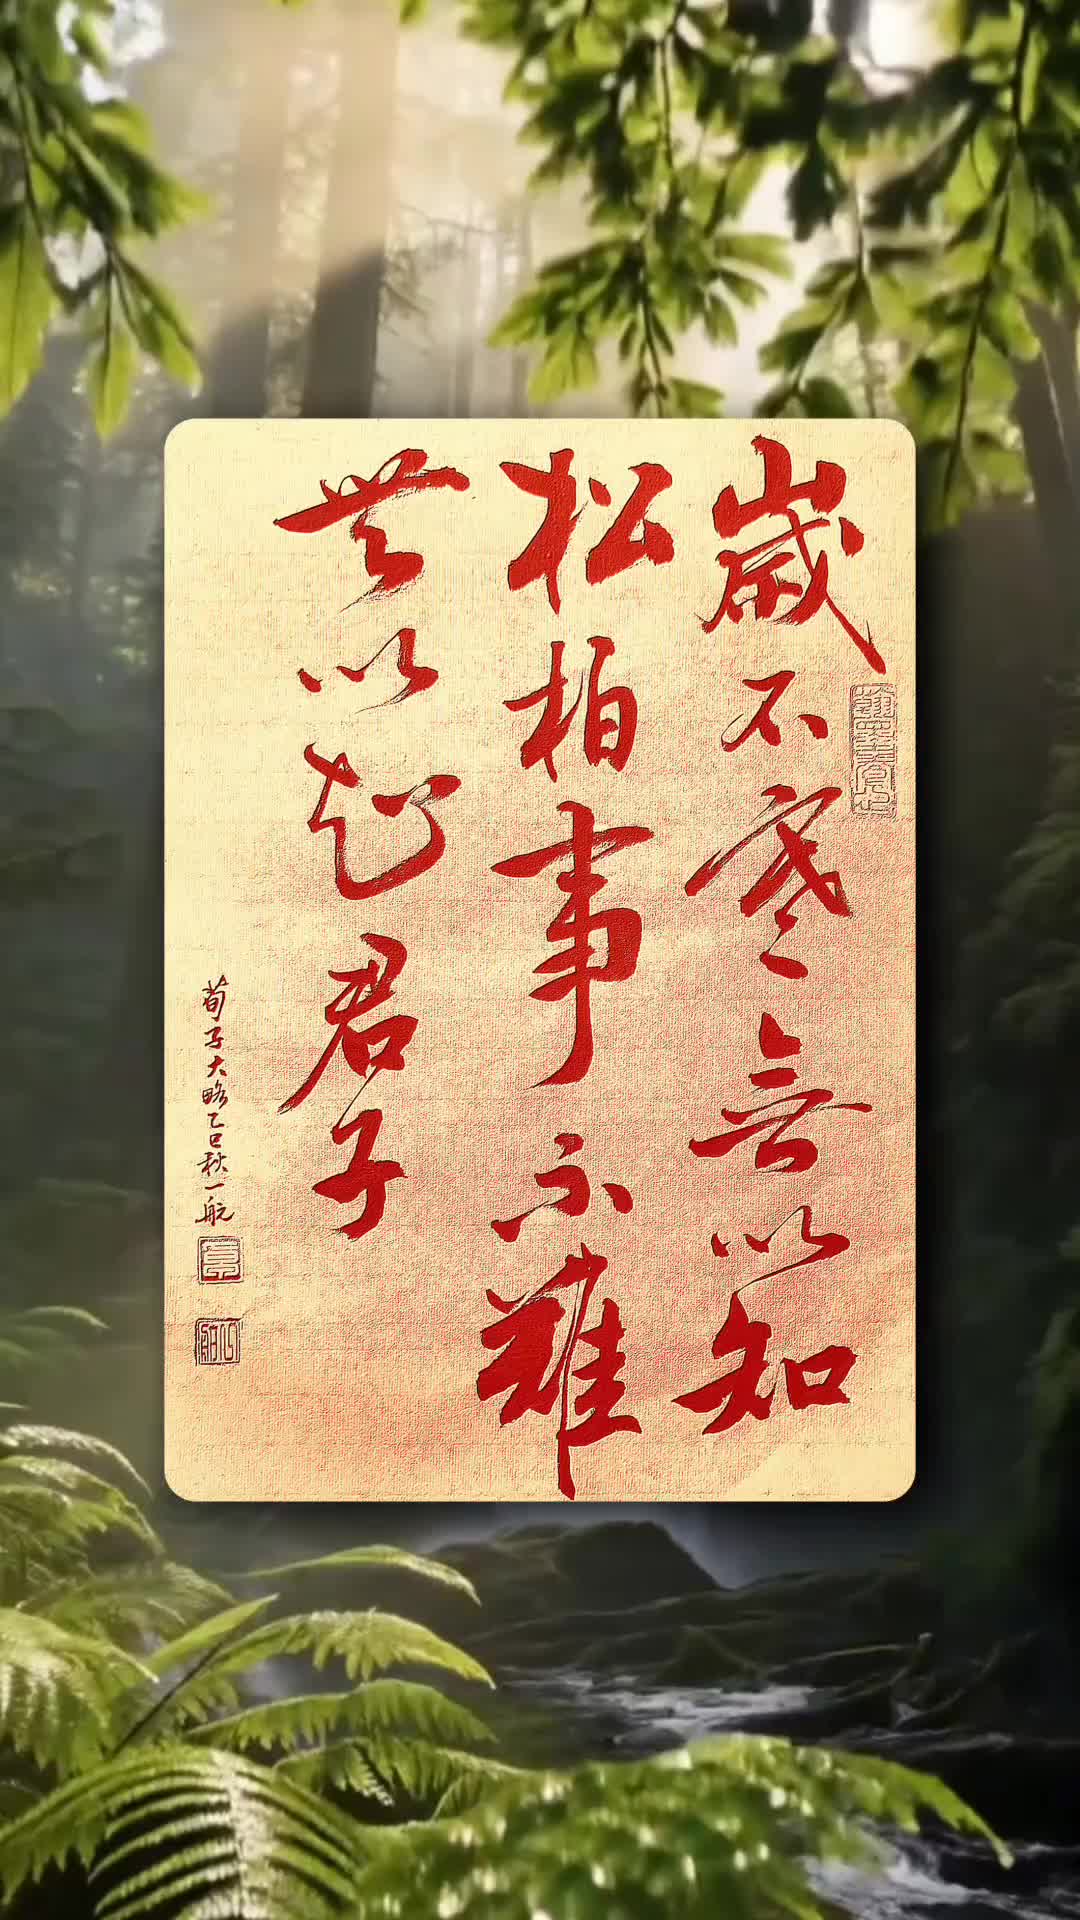 歲不寒無以知
松柏事不難
無以知君子
荀子大略乙巳秋一航